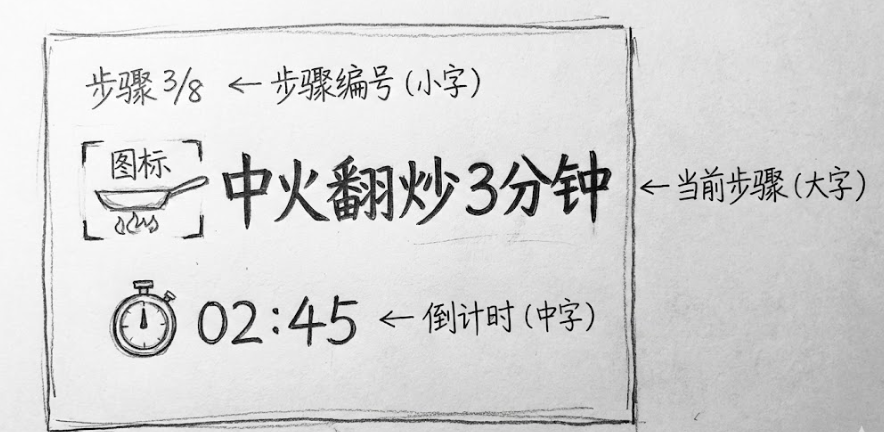 步骤 3/8 ← 步骤编号(小字)
图标
中火翻炒3分钟 ← 当前步骤(大字)
02:45 ← 倒计时(中字)